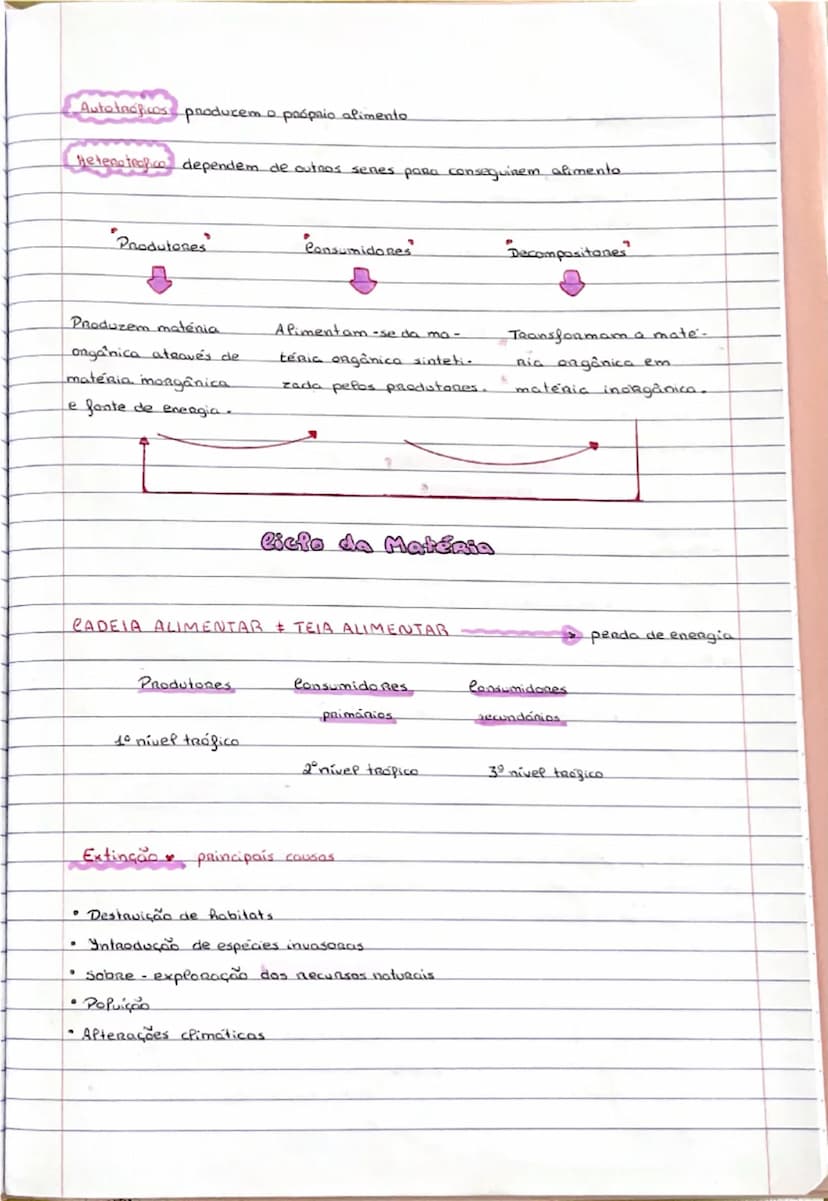 Autotróficos producem o próprio alimento
Heterotrófico dependem de outros seres para conseguirem alimento
"Produtores" "Consumidores" "Decompositores"
Produzem matéria Alimentam-se da ma- Transformam a maté-
orgânica através de téria orgânica sinteti- ria orgânica em
matéria inorgânica zada pelos produtores. matéria inorgânica.
e fonte de energia.
Ciclo da Matéria
CADEIA ALIMENTAR ≠ TEIA ALIMENTAR perda de energia
Produtores Consumidores Consumidores
primários secundários
1º nível trófico
2º nível trófico 3º nível trófico
Extinção principais causas
• Destruição de habitats
• Introdução de espécies invasoras
• Sobre-exploração dos recursos naturais
• Poluição
• Alterações climáticas